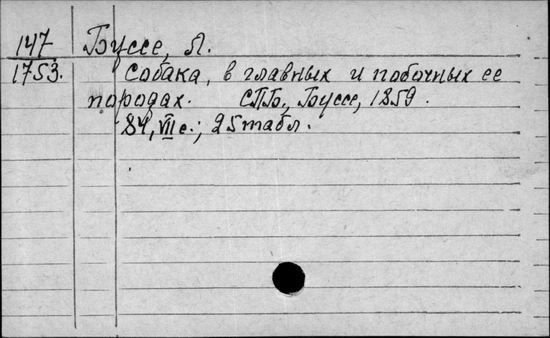 147 Буссе, Л.
1753. Собака, в главных и побочных ее
породах. СПБ., Буссе, 1859.
84, VII с.; 25 табл.